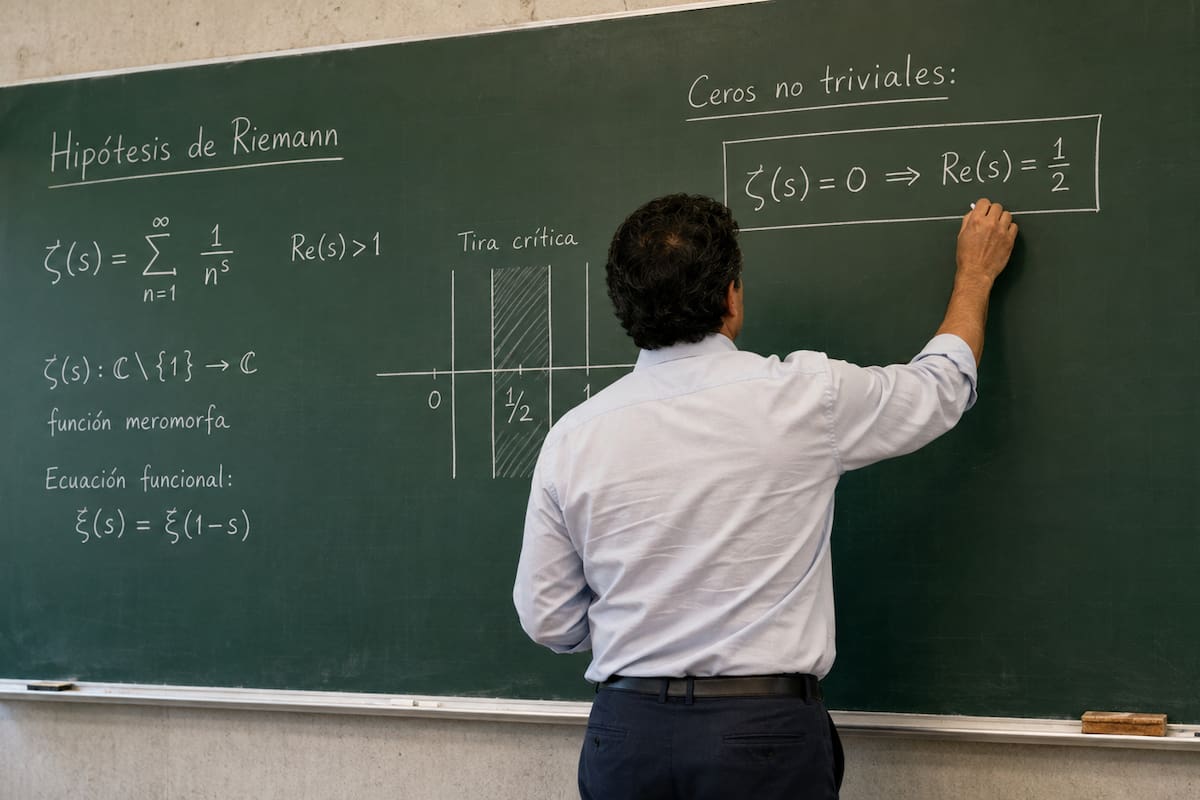 Hipótesis de Riemann
ζ(s) = ∑_{n=1}^{∞} 1/n^s    Re(s) > 1
ζ(s) : ℂ \ {1} → ℂ
función meromorfa
Ecuación funcional:
ξ(s) = ξ(1-s)
Tira crítica
0 1/2 1
Ceros no triviales:
ζ(s) = 0 ⇒ Re(s) = 1/2